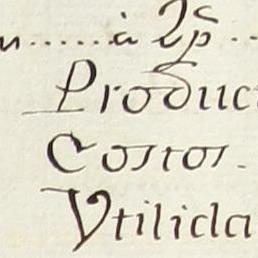 n......à 2p̃..
Produc
Costos.
Vtilida